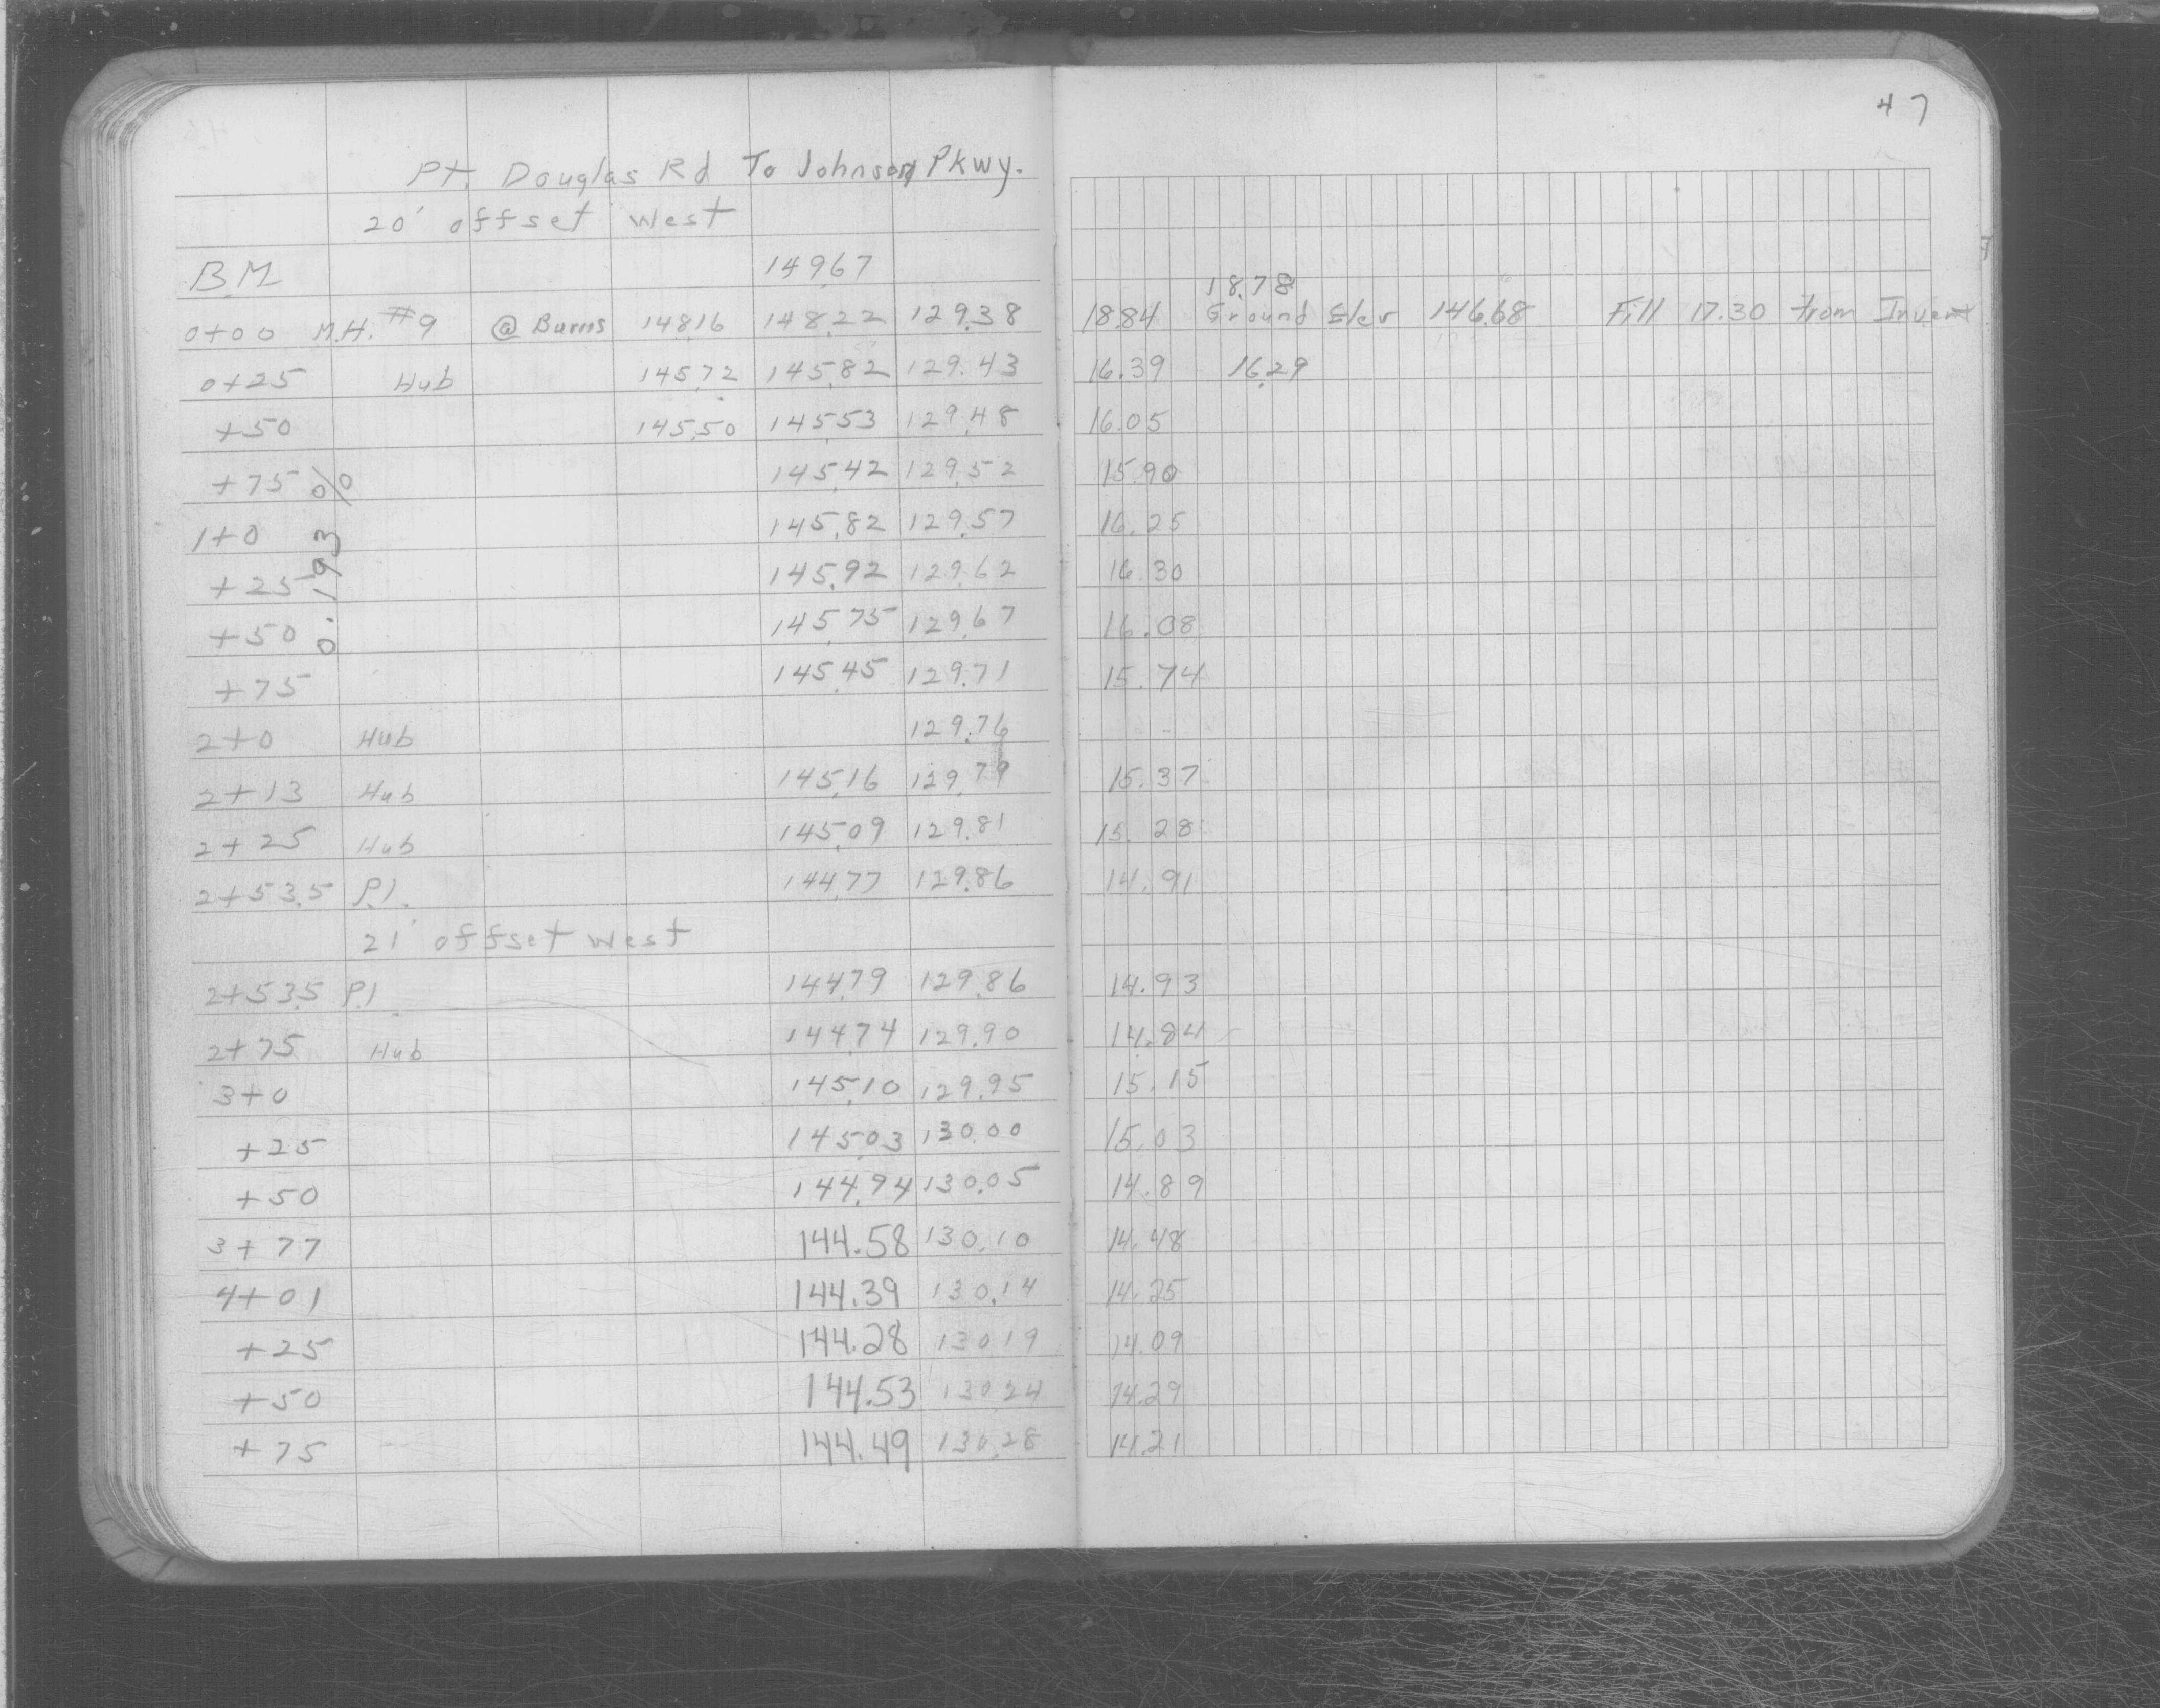 47
Pt. Douglas Rd To Johnson Pkwy.
20' offset West
BM 149.67
18.78
0+00 M.H. #9 @ Burns 148.16 148.22 129.38 18.84 Ground Elev 146.68 Fill 17.30 from Invert
0+25 Hub 145.72 145.82 129.43 16.39 16.29
+50 145.50 145.53 129.48 16.05
+75 145.42 129.52 15.90
1+0 145.82 129.57 16.25
+25 145.92 129.62 16.30
+50 145.75 129.67 16.08
+75 145.45 129.71 15.74
0.193 %
2+0 Hub 129.76
2+13 Hub 145.16 129.79 15.37
2+25 Hub 145.09 129.81 15.28
2+53.5 P.I. 144.77 129.86 14.91
21' offset west
2+53.5 P.I 144.79 129.86 14.93
2+75 Hub 144.74 129.90 14.84
3+0 145.10 129.95 15.15
+25 145.03 130.00 15.03
+50 144.94 130.05 14.89
3+77 144.58 130.10 14.48
4+01 144.39 130.14 14.25
+25 144.28 130.19 14.09
+50 144.53 130.24 14.29
+75 144.49 130.28 14.21